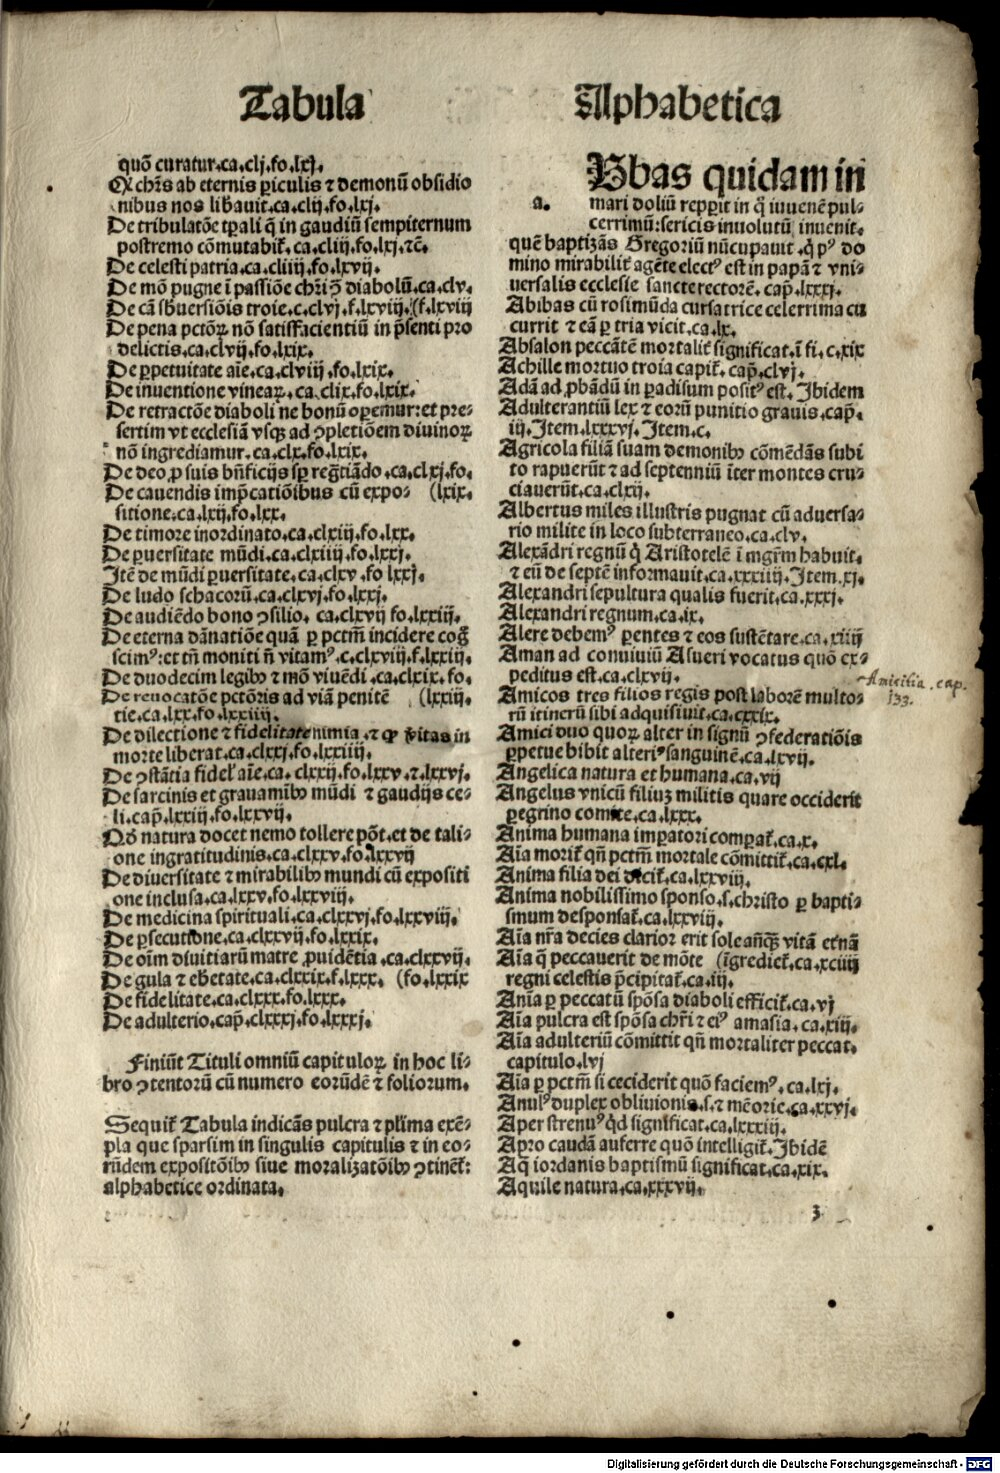 Tabula
quō curatur.ca.clj.fo.lxj.
Q chr̄s ab eternis ꝑiculis ⁊ demonū obsidio
nibus nos lib̄auit.ca.clij.fo.lxj.
De tribulatōe tꝑali q̄ in gaudiū sempiternum
postremo cōmutabit̄.ca.cliij.fo.lxj.⁊c̄.
De celesti patria.ca.cliiij.fo.lxvij.
De mō pugne ī passiōe chr̄i ꝯ̄ diabolū.ca.clv.
De cā sb̄uersiōis troie.c.clvj.f.lxviij.(f.lxviij
De pena pctōꝝ nō satisfacientiū in p̄senti pro
delictis.ca.clvij.fo.lxix.
De ꝑpetuitate aīe.ca.clviij.fo.lxix.
De inuentione vineaꝝ.ca.clix.fo.lxix.
De retractōe diaboli ne bonū oꝑemur:et pre⸗
sertim vt ecclesiā vsqꝫ ad ꝯpletiōem diuinoꝝ
nō ingrediamur.ca.clx.fo.lxix.
De deo ꝓ suis bn̄ficijs sꝑ regr̄tiādo.ca.clxj.fo.
De cauendis imp̄catiōibus cū expo⸗ (lxix.
sitione.ca.lxij.fo.lxx.
De timore inordinato.ca.clxiij.fo.lxx.
De ꝑuersitate mūdi.ca.clxiiij.fo.lxxj.
Itē de mūdi ꝑuersitate.ca.clxv.fo lxxj.
De ludo schacorū.ca.clxvj.fo.lxxj.
De audiēdo bono ꝯsilio. ca.clxvij fo.lxxiij.
De eterna dānatiōe quā ꝑ pctm̄ incidere coḡ
scimꝰ:et tn̄ moniti n̄ vitamꝰ.c.clxviij.f.lxxiij.
De duodecim legibꝰ ⁊ mō viuēdi.ca.clxix.fo.
De reuocatōe pctōris ad viā penitē (lxxiij.
tie.ca.lxx.fo.lxxiiij.
De dilectione ⁊ fidelitate nimia.⁊ ꝙ v̄itas in
morte liberat.ca.clxxj.fo.lxxiiij.
De ꝯstātia fidel̄ aīe.ca.clxxij.fo.lxxv.⁊.lxxvj.
De sarcinis et grauamībꝰ mūdi ⁊ gaudijs ce⸗
li.cap̄.lxxiij.fo.lxxvij.
Qō natura docet nemo tollere pōt.et de tali⸗
one ingratitudinis.ca.clxxv.fo.lxxvij
De diuersitate ⁊ mirabilibꝰ mundi cū expositi
one inclusa.ca.lxxv.fo.lxxviij.
De medicina spirituali.ca.clxxvj.fo.lxxviij.
De ꝑsecutione.ca.clxxvij.fo.lxxix.
De oīm diuitiarū matre ꝓuidētia.ca.clxxvij.
De gula ⁊ eb̄etate.ca.clxxix.f.lxxx. (fo.lxxix
De fidelitate.ca.clxxx.fo.lxxx.
De adulterio.cap̄.clxxxj.fo.lxxxj.
Finiūt Tituli omniū capituloꝝ in hoc li⸗
bro ꝯtentorū cū numero eorūdē ⁊ foliorum.
Sequit̄ Tabula indicās pulcra ⁊ plīma exē⸗
pla que sparsim in singulis capitulis ⁊ in eo⸗
rūdem expositōibꝰ siue moralizatōibꝰ ꝯtinēt̄:
alphabetice ordinata.
Alphabetica
Abbas quidam in
a. mari doliū repꝑit in q̄ iuuenē pul⸗
cerrimū:sericis inuolutū inuenit.
quē baptizās Gregoriū nūcupauit.q̄ pꝰ do
mino mirabilit̄ agēte electꝰ est in papā ⁊ vni⸗
uersalis ecclesie sancte rectorē. cap̄.lxxxj.
Abibas cū rosimūda cursatrice celerrima cu
currit ⁊ eā ꝑ tria vicit.ca.lx.
Absalon peccātē mortalit̄ significat.ī fi.c.xix
Achille mortuo troia capit̄. cap̄.clvj.
Adā ad ꝓbādū in ꝑadisum positꝰ est.Ibidem
Adulterantiū lex ⁊ eorū punitio grauis.cap̄.
iij.Item.lxxxvj.Item.c.
Agricola filiā suam demonibꝰ cōmēdās subi
to rapuerūt ⁊ ad septenniū īter montes cru⸗
ciauerūt.ca.clxij.
Albertus miles illustris pugnat cū aduersa⸗
rio milite in loco subterraneo.ca.clv.
Alexādri regnū q̄ Aristotelē ī mgr̄m habuit.
⁊ eū de septē informauit.ca.xxxiiij.Item.xj.
Alexandri sepultura qualis fuerit.ca.xxxj.
Alexandri regnum.ca.ix.
Alere debemꝰ ꝑentes ⁊ eos sustētare.ca.xiiij
Aman ad conuiuiū Asueri vocatus quō ex⸗
peditus est.ca.clxvij.
Amicos tres filios regis post laborē multo⸗
rū itinerū sibi adquisiuit.ca.cxxix.
Amici duo quoꝝ alter in signū ꝯfederatiōis
ꝑpetue bibit alteriꝰ sanguinē.ca.lxvij.
Angelica natura et humana.ca.vij
Angelus vnicū filiuꝫ militis quare occiderit
ꝑegrino comite.ca.lxxx.
Anima humana imꝑatori comꝑat̄.ca.x.
Aīa morit̄ qn̄ pctm̄ mortale cōmittit̄.ca.cxl.
Anima filia dei dicit̄.ca.lxxviij.
Anima nobilissimo sponso.s.christo ꝑ bapti⸗
smum desponsat̄.ca.lxxviij.
Aīa nr̄a decies clarior erit sole anq̄ꝫ vitā etnā
Aīa q̄ peccauerit de mōte (īgrediet̄.ca.xciiij
regni celestis p̄cipitat̄.ca.iij.
Anīa ꝑ peccatū spōsa diaboli efficit̄.ca.vj
Aīa pulcra est spōsa chr̄i ⁊ eiꝰ amasia.ca.xiij.
Aīa adulteriū cōmittit qn̄ mortaliter peccat.
capitulo.lvj
Aīa ꝑ pctm̄ si ceciderit quō faciemꝰ.ca.lxj.
Anulꝰ duplex obliuionis.s.⁊ mēorie.ca.xxvj.
Aper strenuꝰ q̄d significat.ca.lxxxiij.
Apro caudā auferre quō intelligit̄.Ibidē
Aq̄ iordanis baptismū significat.ca.xix.
Aquile natura.ca.xxxvij.
3
Amicitia. cap.
133.
Digitalisierung gefördert durch die Deutsche Forschungsgemeinschaft - DFG